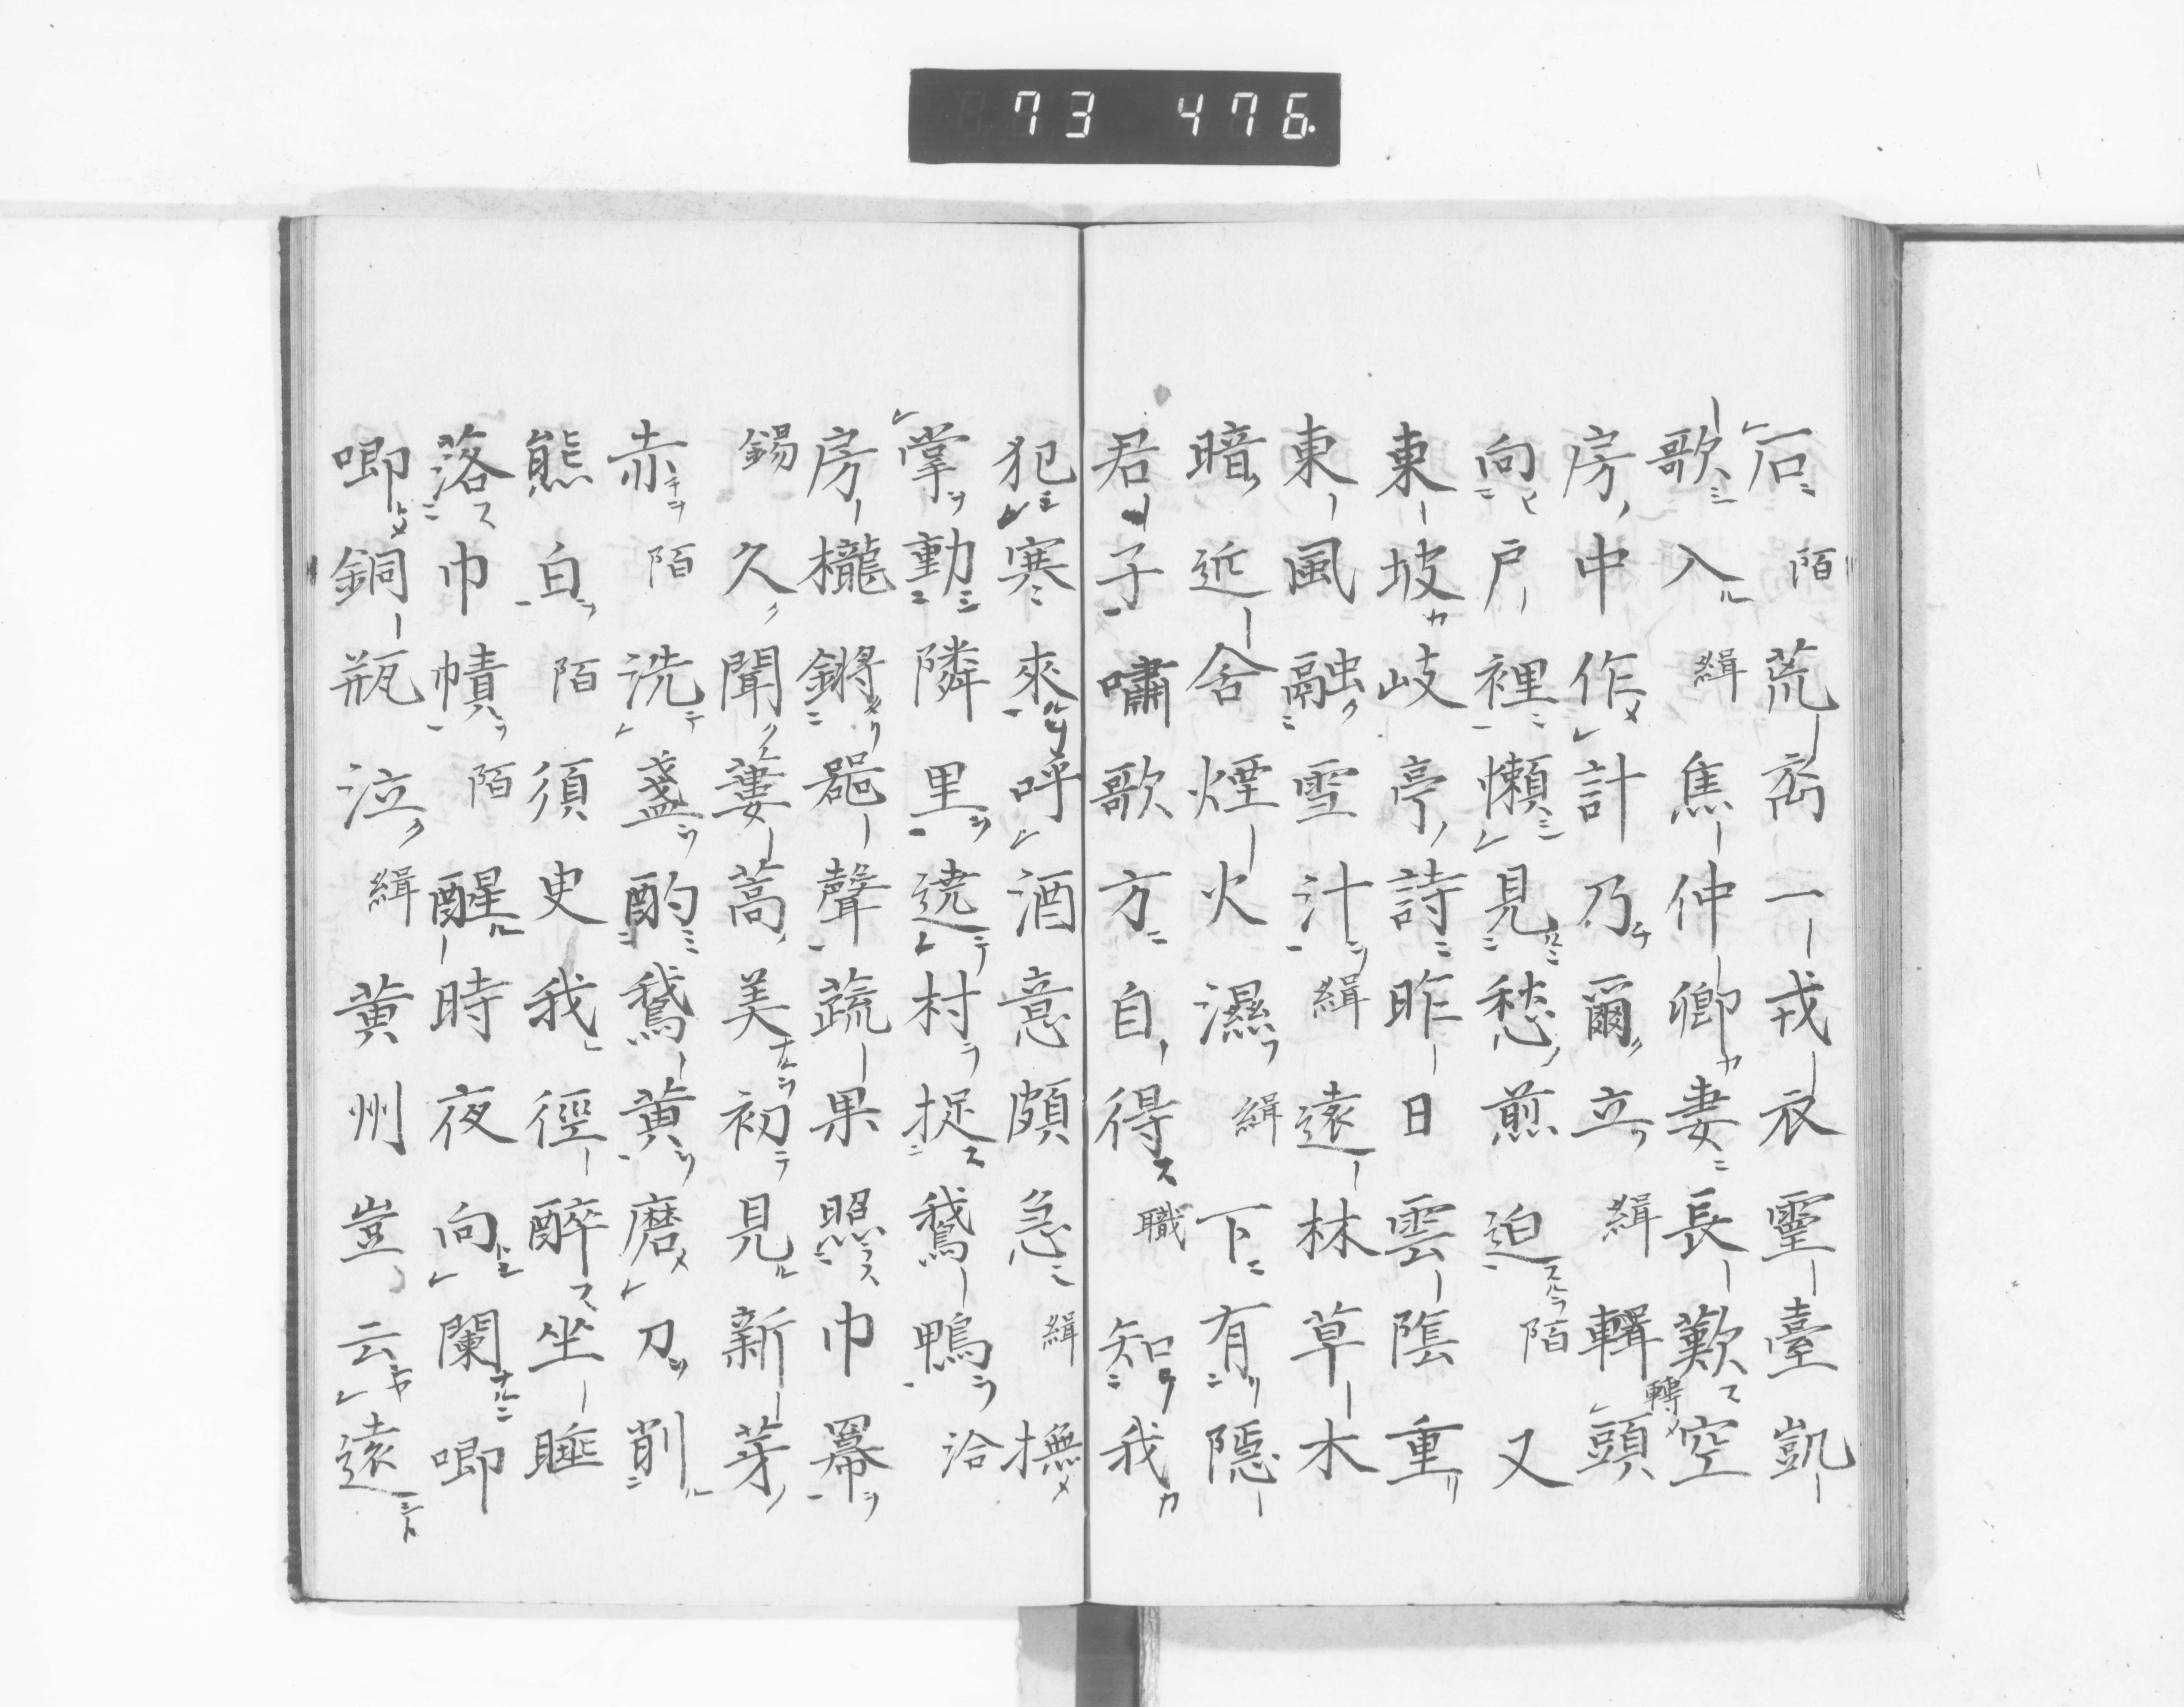 73 476
石陌荒岊一戎衣靈臺凱
歌入緝焦仲卿妻長歎空
房中作計乃爾立緝輯轉頭
向戶裡懶見愁煎迫陌又
東坡岐亭詩昨日雲陰重
東風融雪汁緝遠林草木
暗近舍煙火濕緝下有隱
君子嘯歌方自得職知我
犯寒來呼酒意頗急緝撫
掌動隣里遶村捉鵝鴨洽
房櫳鏘器聲蔬果照巾冪
錫久聞蔞蒿美初見新芽
赤陌洗盞酌鵝黃磨刀削
熊白陌須臾我徑醉坐睡
落巾幘陌醒時夜向闌唧
唧銅瓶泣緝黃州豈云遠